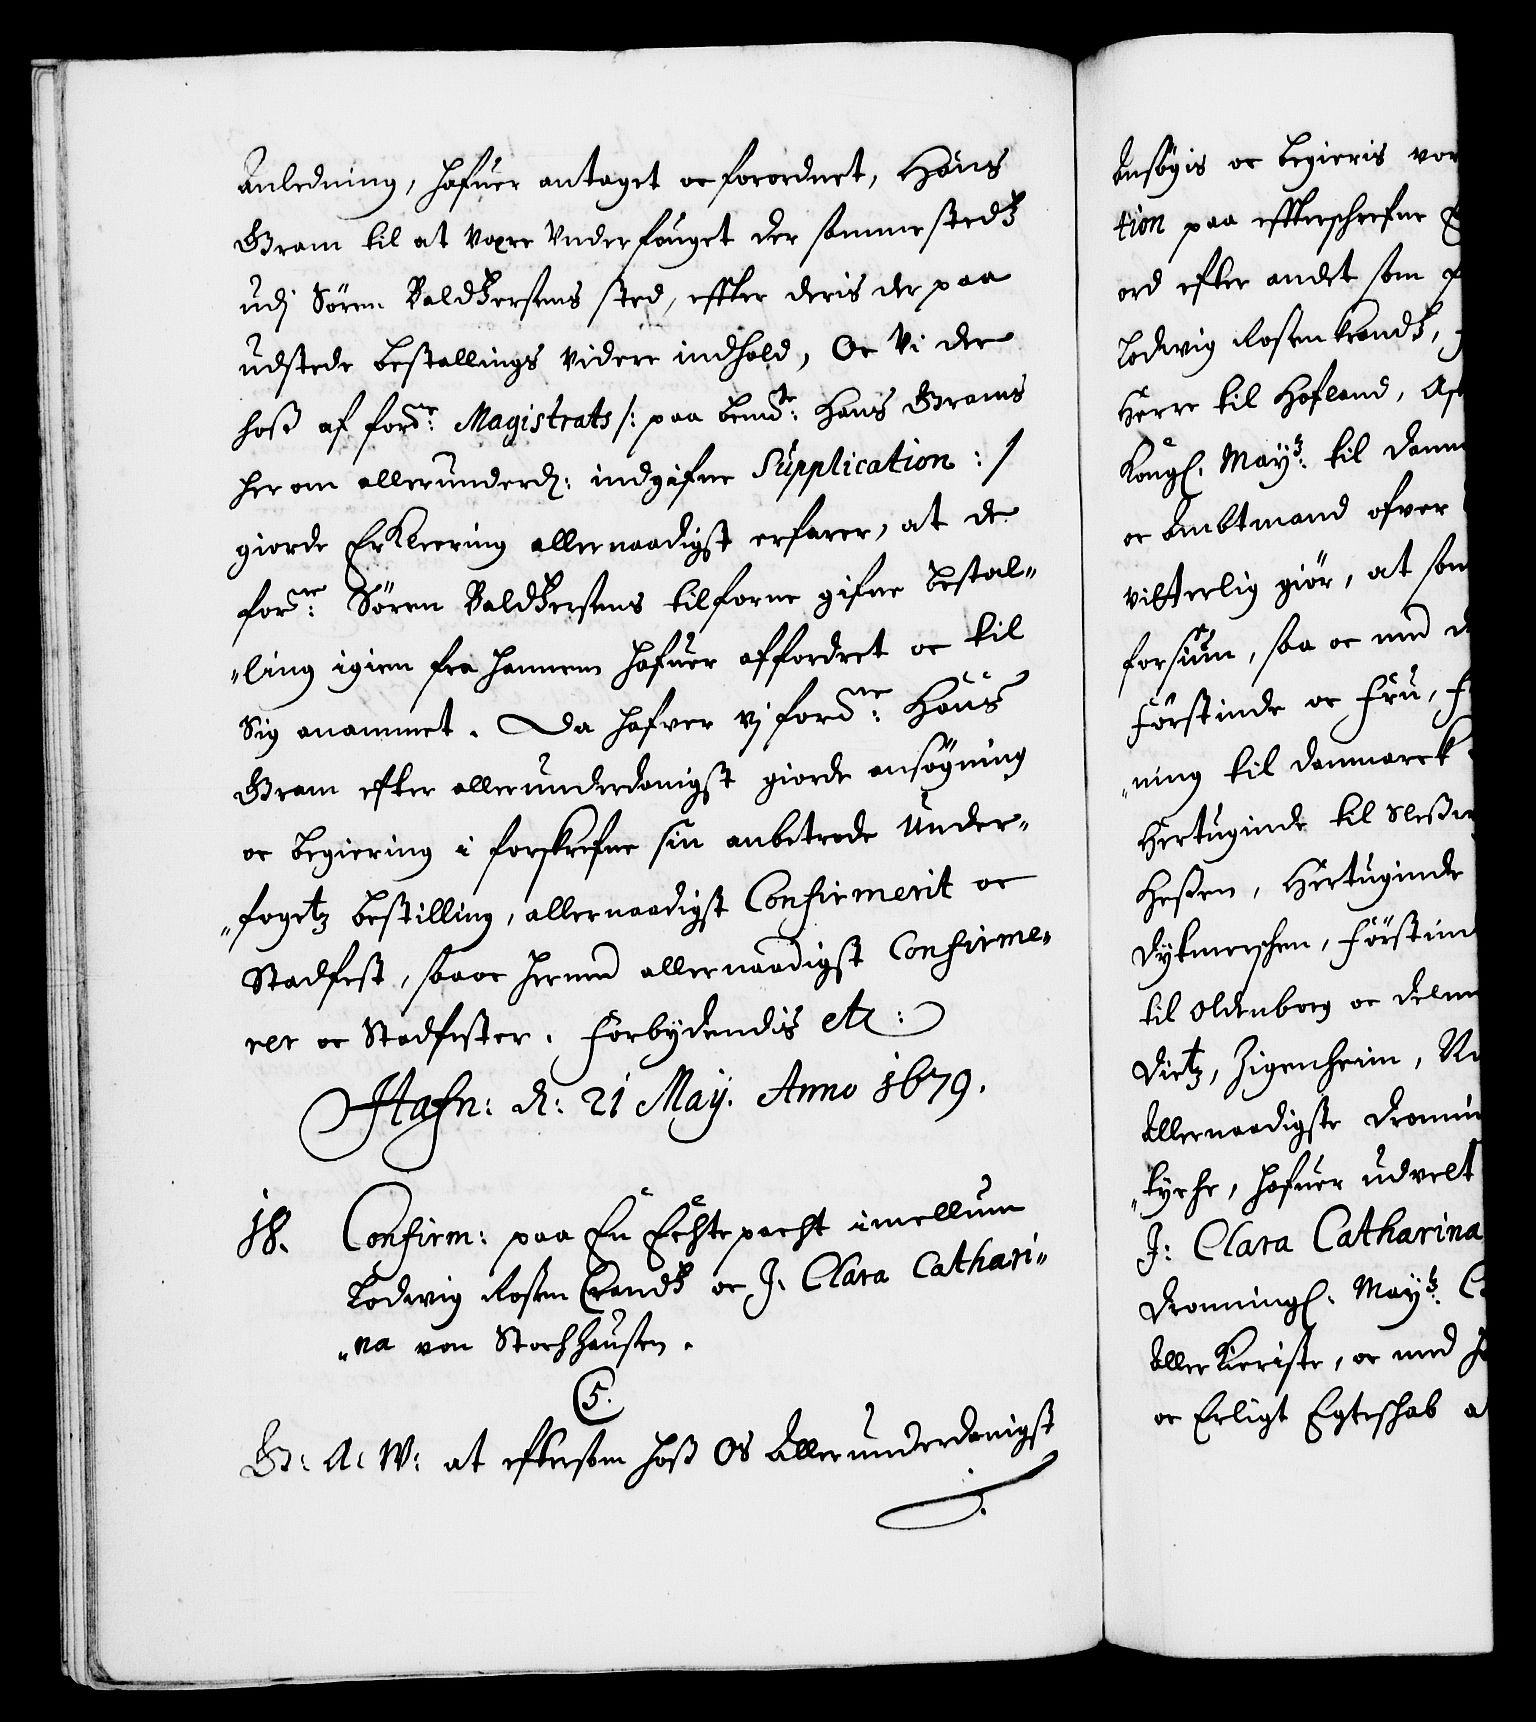 Anledning, hafuer antaget oc forordnet, Hans
Gram til at være Underfouget der sammestedtz
udj Sören Baldtzersens sted, effter deris der paa
udstede bestallings videre indhold, Oc Vi der
hoss af forde: Magistrats /: paa bemte: Hans Grams
her om allerunderd: indgifne Supplication :/
giorde Erklering allernaadigst erfarer, at de
forne: Sören Baldtzersens tilforne gifne bestal-
"ling igien fra hannem hafuer affordret oc til
Sig anammet. Da hafver vj forne: Hans
Gram efter allerunderdanigst giorde ansøgning
oc begiering i forskrefne sin anbetrode Under-
"fogetz bestilling, allernaadigst Confirmerit oc
Stadfest, saa oc hermed allernaadigst Confirme-
rer oc Stadfester. Forbydendis etc:
Hafn: d: 21 Maij. Anno 1679.
18. Confirm: paa En Echtepacht imellum
Lodwig Rosen Crandtz oc J. Clara Cathari-
"na von Storchhausen.
C5.
G: A: W: at eftersom hoss Os Allerunderdanigst
Ansøgis oc begieris vor
tion paa effterschrefne
ord efter andet som
Lodwig Rosenkrandtz,
Herre til Hofland,
Kongl. Maytz: til Danm
oc Ambtmand ofver
vitterlig giör, at som
forsiun, saa oc med
Förstinde oc Fru,
"ning til Danmarck
Hertuginde til Slessw
Hessen, Hertuginde
Dytmerschen, Förstind
til Oldenborg oc Delm
Dietz, Zigenheim,
Allernaadigste Dronn
"tyche, hafuer udvelt
J: Clara Catharina
Dronningl. Maytz.
Aller Kieriste, oc med
oc Erligt Egteschab